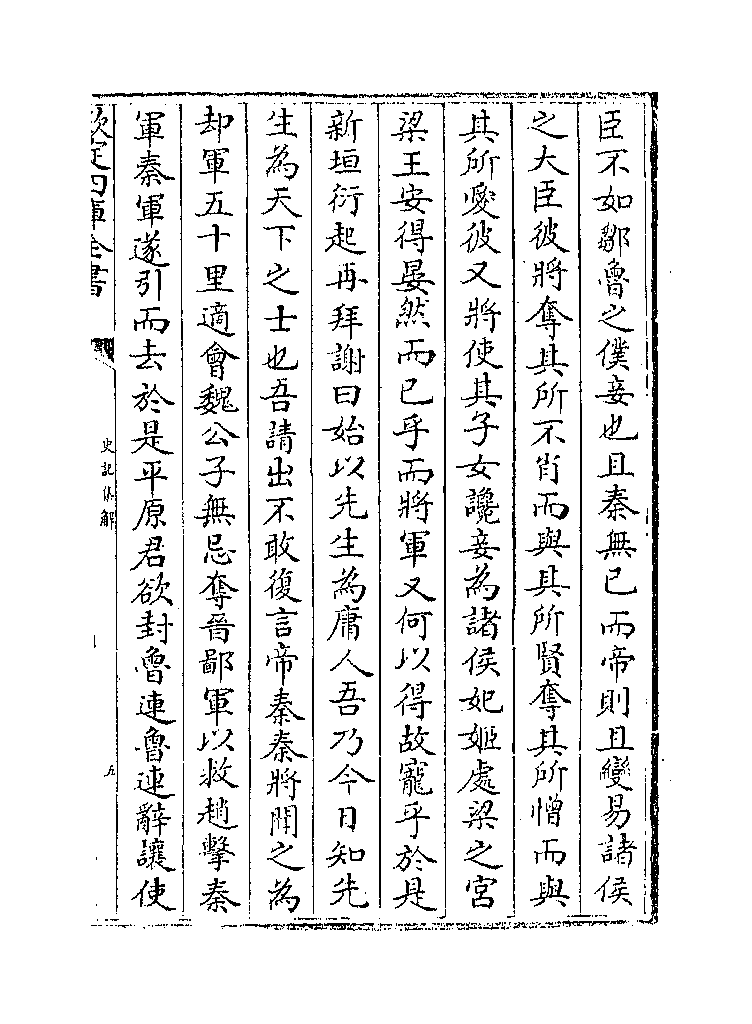 臣不如鄒魯之僕妾也且秦無已而帝則且變易諸侯
之大臣彼將奪其所不肖而與其所賢奪其所憎而與
其所愛彼又將使其子女讒妾為諸侯妃姬處梁之宮
梁王安得晏然而已乎而將軍又何以得故寵乎於是
新垣衍起再拜謝曰始以先生為庸人吾乃今日知先
生為天下之士也吾請出不敢復言帝秦秦將聞之為
却軍五十里適會魏公子無忌奪晉鄙軍以救趙擊秦
軍秦軍遂引而去於是平原君欲封魯連魯連辭讓使
欽定四庫全書
史記集解
五